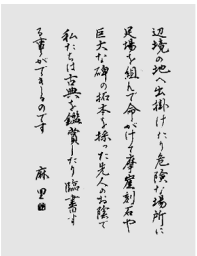 辺境の地へ出掛けたり危険な場所に
足場を組んで命がけで摩崖刻石や
巨大な碑の拓本を採った先人のお陰で
私たちは古典を鑑賞したり臨書す
る事ができるのです
麻里